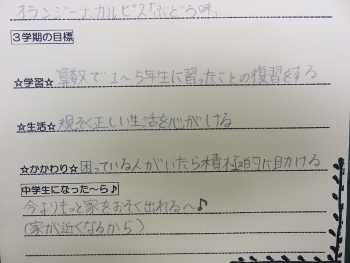 オランジーナ、カルピス「ぶどう味」
3学期の目標
☆学習☆ 算数で1～5年生に習ったことの復習をする
☆生活☆ 規そく正しい生活を心がける
☆かかわり☆ 困っている人がいたら積極的に助ける
中学生になった～ら♪
今よりもっと家をおそく出れる～♪
(家が近くなるから)